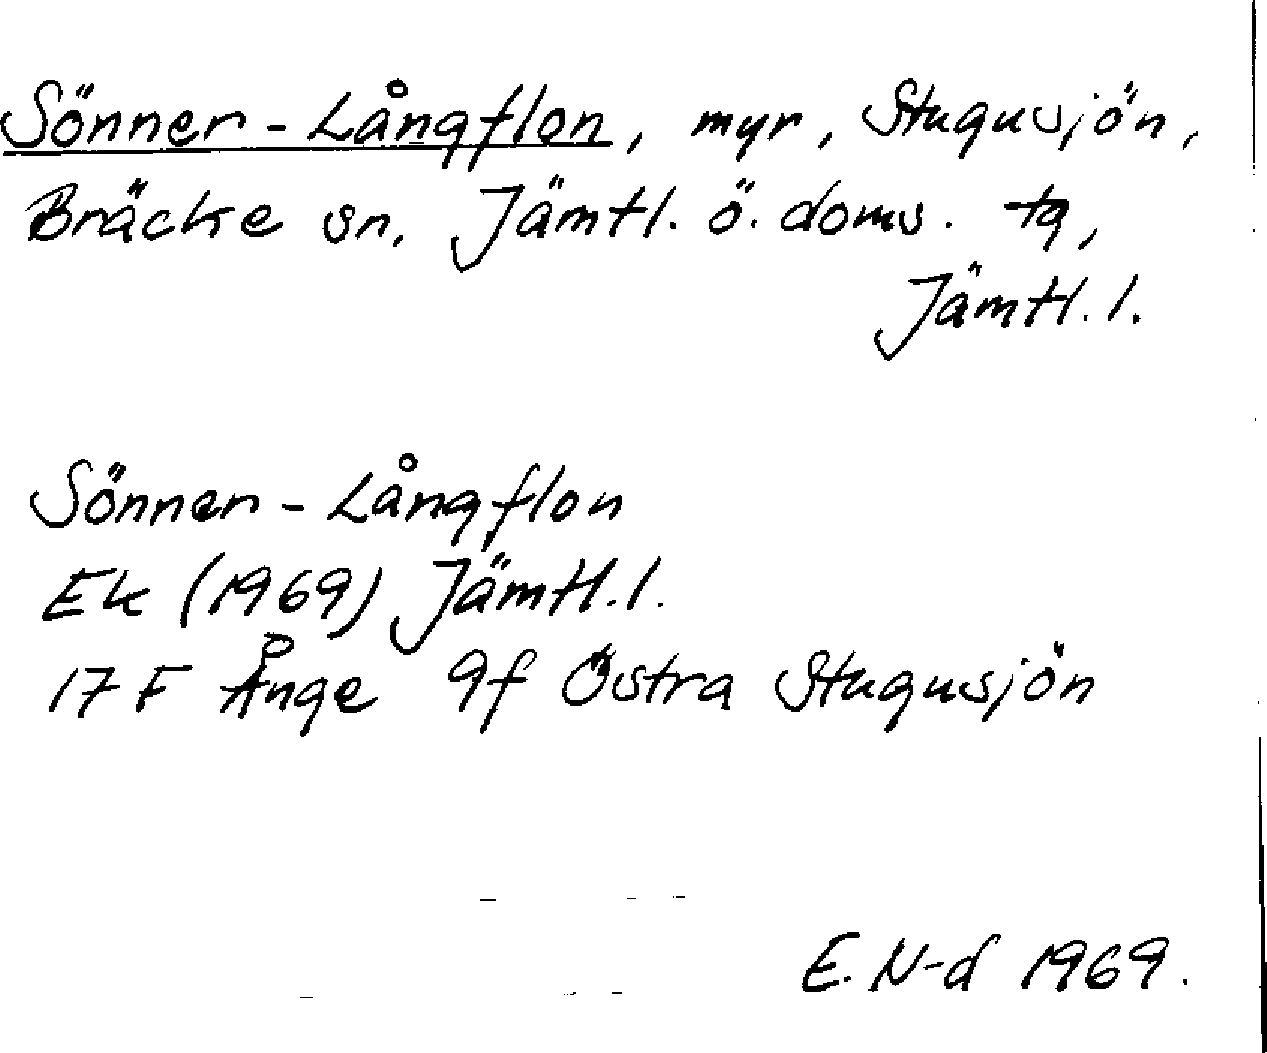 Sönner-Långflon, myr, Stugusjön,
Bräcke sn. Jämtl. ö. doms. tg,
Jämtl. l.
Sönner-Långflon
Ek (1969) Jämtl. l.
17 F Ånge 9f Östra Stugusjön
E. N-d 1969.